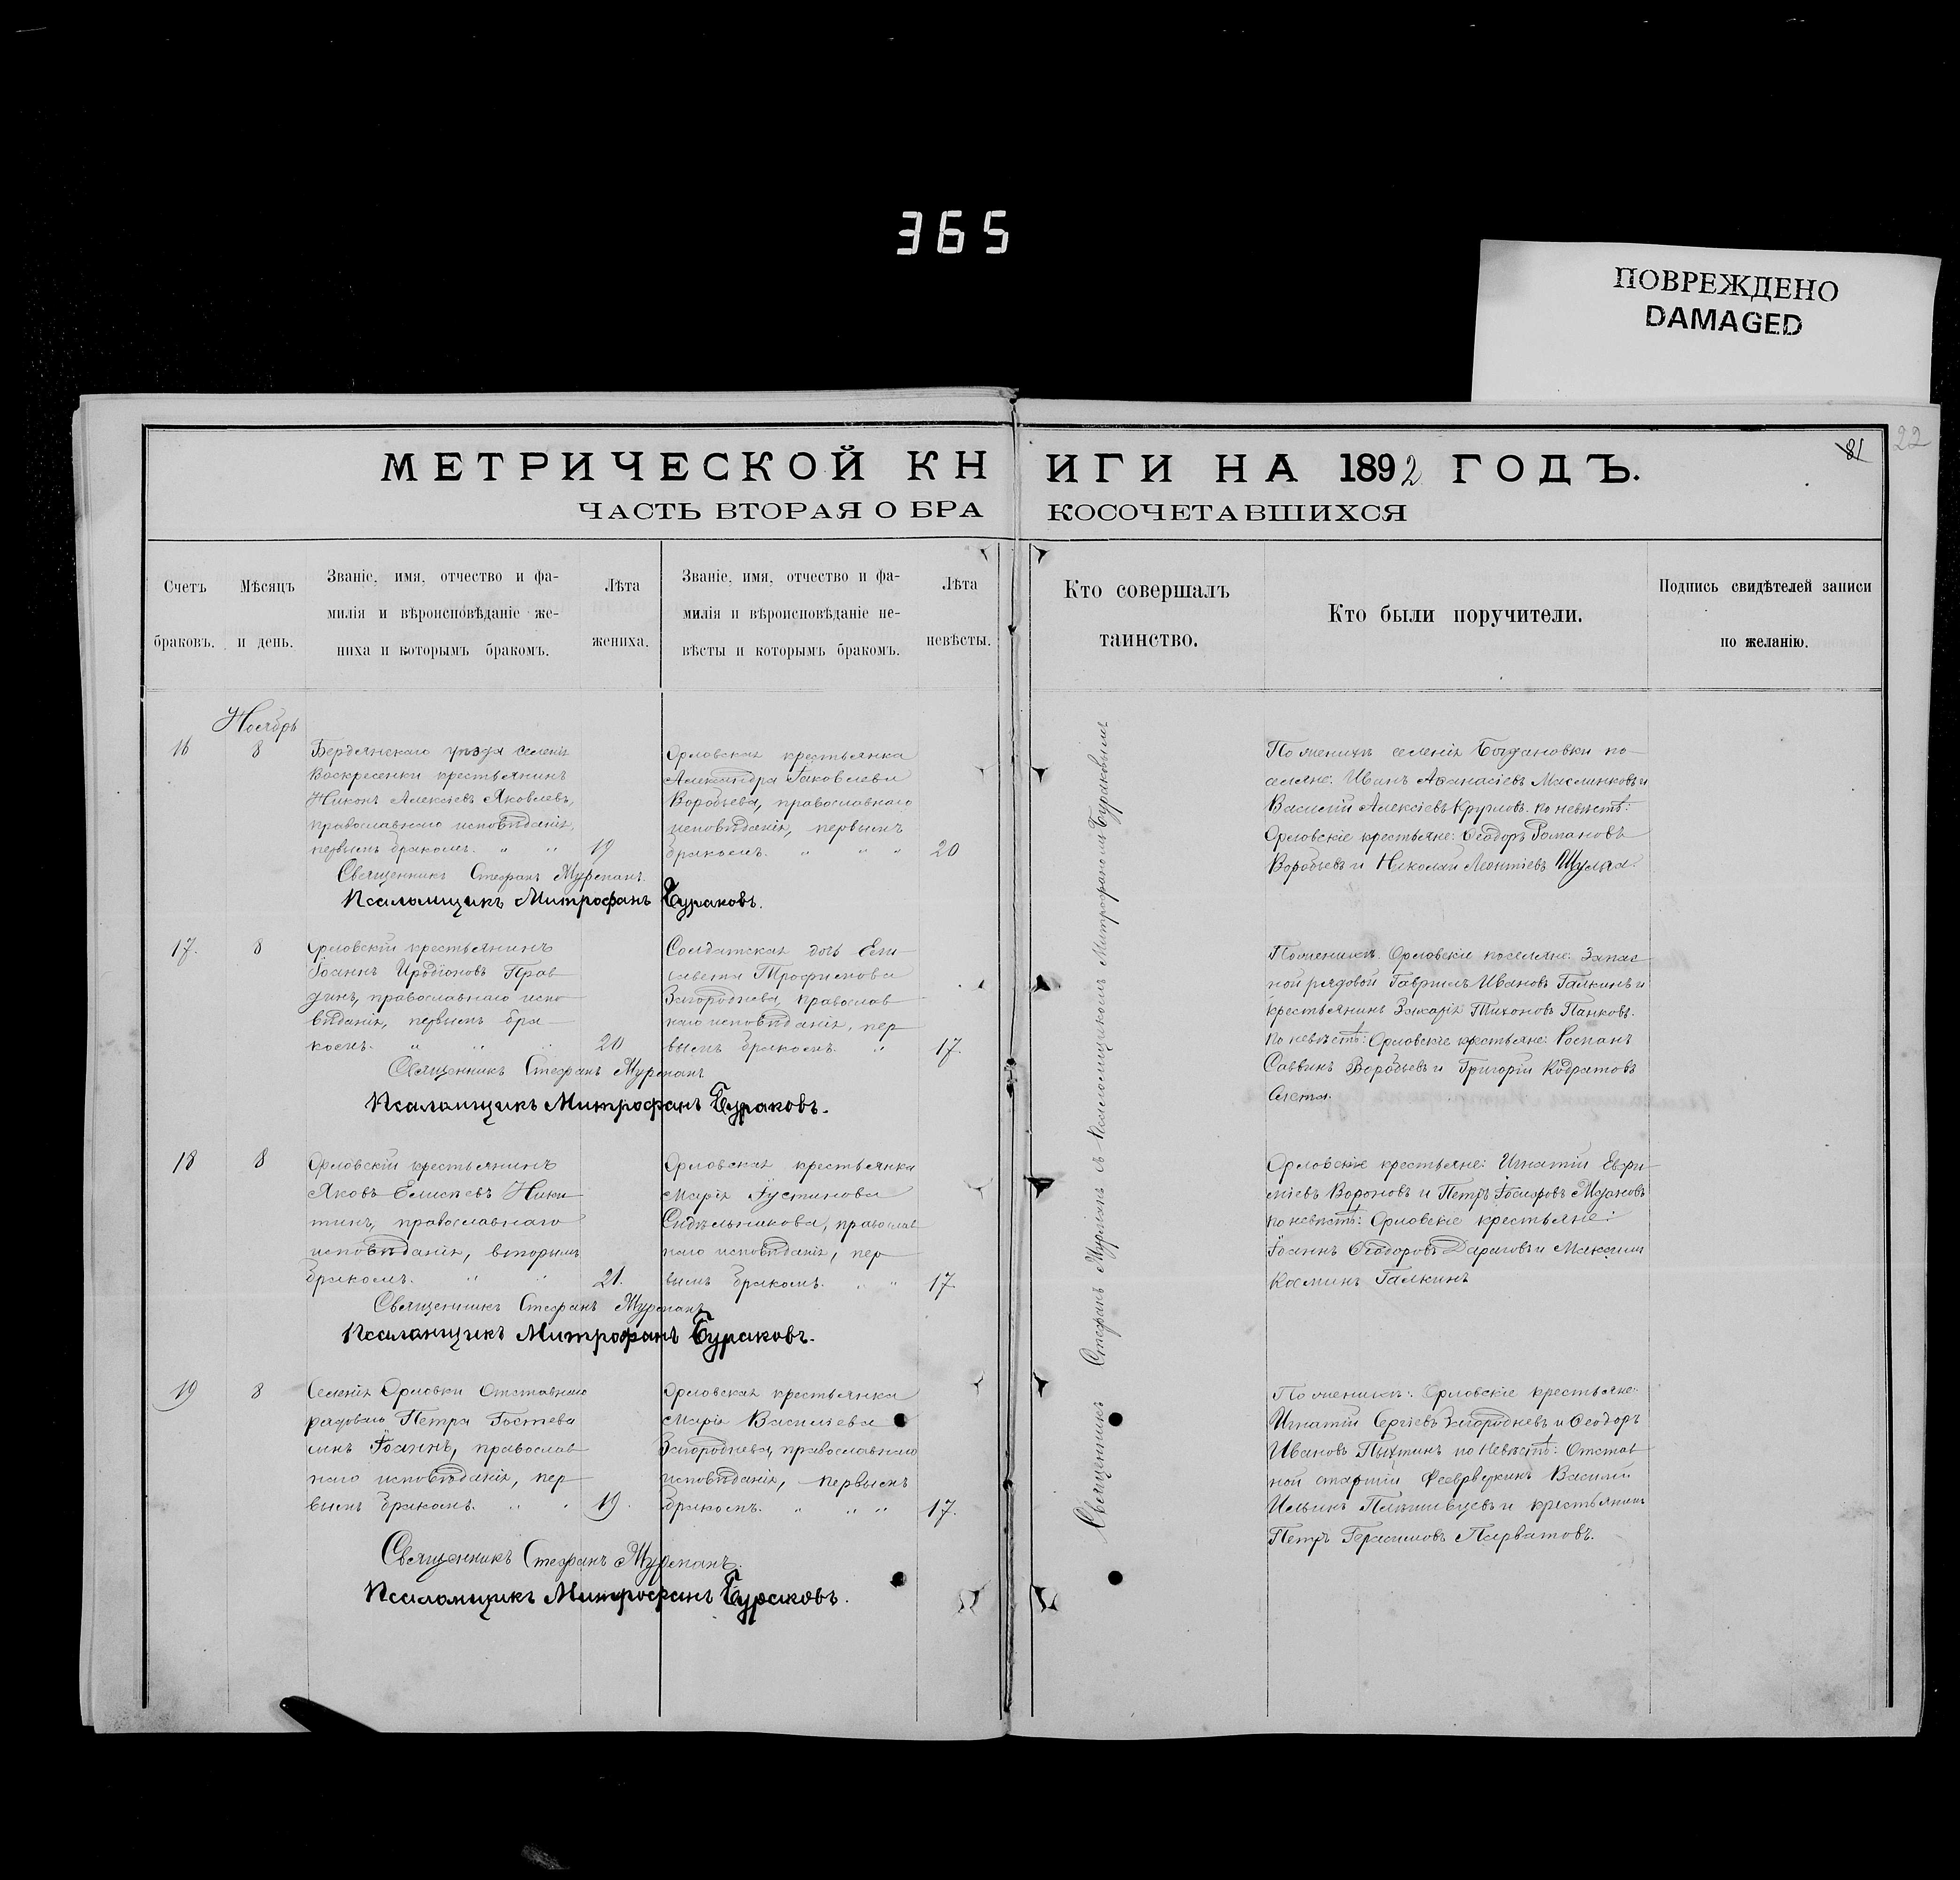 365
ПОВРЕЖДЕНО
DAMAGED
22
81
МЕТРИЧЕСКОЙ КНИГИ НА 1892 ГОДЪ.
ЧАСТЬ ВТОРАЯ О БРАКОСОЧЕТАВШИХСЯ
Счетъ браковъ.
Мѣсяцъ и день.
Званіе, имя, отчество и фа-
милія и вѣроисповѣданіе же-
ниха и которымъ бракомъ.
Лѣта жениха.
Званіе, имя, отчество и фа-
милія и вѣроисповѣданіе не-
вѣсты и которымъ бракомъ.
Лѣта невѣсты.
Кто совершалъ
таинство.
Кто были поручители.
Подпись свидѣтелей записи
по желанію.
Ноябрь
16
8
Бердянскаго уѣзда селенія
Воскресенки крестьянинъ
Никонъ Алексіевъ Яковлевъ,
православнаго исповѣданія,
первымъ бракомъ. " "
19
Орловская крестьянка
Александра Іаковлева
Воробьева, православнаго
исповѣданія, первымъ
бракомъ. " " "
20
По женихѣ селенія Богдановки по-
селяне: Иванъ Аѳанасіевъ Маслинковъ и
Василій Алексіевъ Кругловъ. по невѣстѣ:
Орловскіе крестьяне: Ѳеодоръ Романовъ
Воробьевъ и Николай Леонтіевъ
Священникъ Стефанъ
Псаломщикъ Митрофанъ Бураковъ.
17.
8
Орловскій крестьянинъ
Іоаннъ Иродіоновъ Прав-
динъ, православнаго испо-
вѣданія, первымъ бра-
комъ. " " "
20
Солдатская дочь Ели-
савета Трофимова
Загороднева, православ-
наго исповѣданія, пер-
вымъ бракомъ. "
17.
По женихѣ. Орловскіе поселяне: Запас-
ной рядовой Гавріилъ Ивановъ Галкинъ и
крестьянинъ Захарія Тихоновъ Панковъ.
по невѣстѣ: Орловскіе крестьяне: Романъ
Саввинъ Воробьевъ и Григорій Кодратовъ
Священникъ Стефанъ
Псаломщикъ Митрофанъ Бураковъ.
18
8
Орловскій крестьянинъ
Яковъ Елисѣевъ Ники-
тинъ, православнаго
исповѣданія, вторымъ
бракомъ. " "
21.
Орловская крестьянка
Марія Іустинова
Сидѣльникова, православ-
наго исповѣданія, пер-
вымъ бракомъ. " "
17.
Орловскіе крестьяне: Игнатій Евфи-
міевъ Вороновъ и Петръ
по невѣстѣ: Орловскіе крестьяне:
Іоаннъ Ѳеодоровъ и Максимъ
Косминъ Галкинъ
Священникъ Стефанъ
Псаломщикъ Митрофанъ Бураковъ.
19
8
Селенія Орловки Отставнаго
рядоваго Петра Гостева
сынъ Іоаннъ, православ-
наго исповѣданія, пер-
вымъ бракомъ. " "
19.
Орловская крестьянка
Марія Василіева
Загороднева, православнаго
исповѣданія, первымъ
бракомъ. " " "
17.
По женихѣ: Орловскіе крестьяне:
Игнатій Сергіевъ Загородневъ и Ѳеодоръ
Ивановъ Пыхтинъ по невѣстѣ: Отстав-
ной старшій Василій
Ильинъ и крестьянинъ
Петръ Герасимовъ
Священникъ Стефанъ
Псаломщикъ Митрофанъ Бураковъ.
Священникъ Стефанъ съ Псаломщикомъ Митрофаномъ Бураковымъ